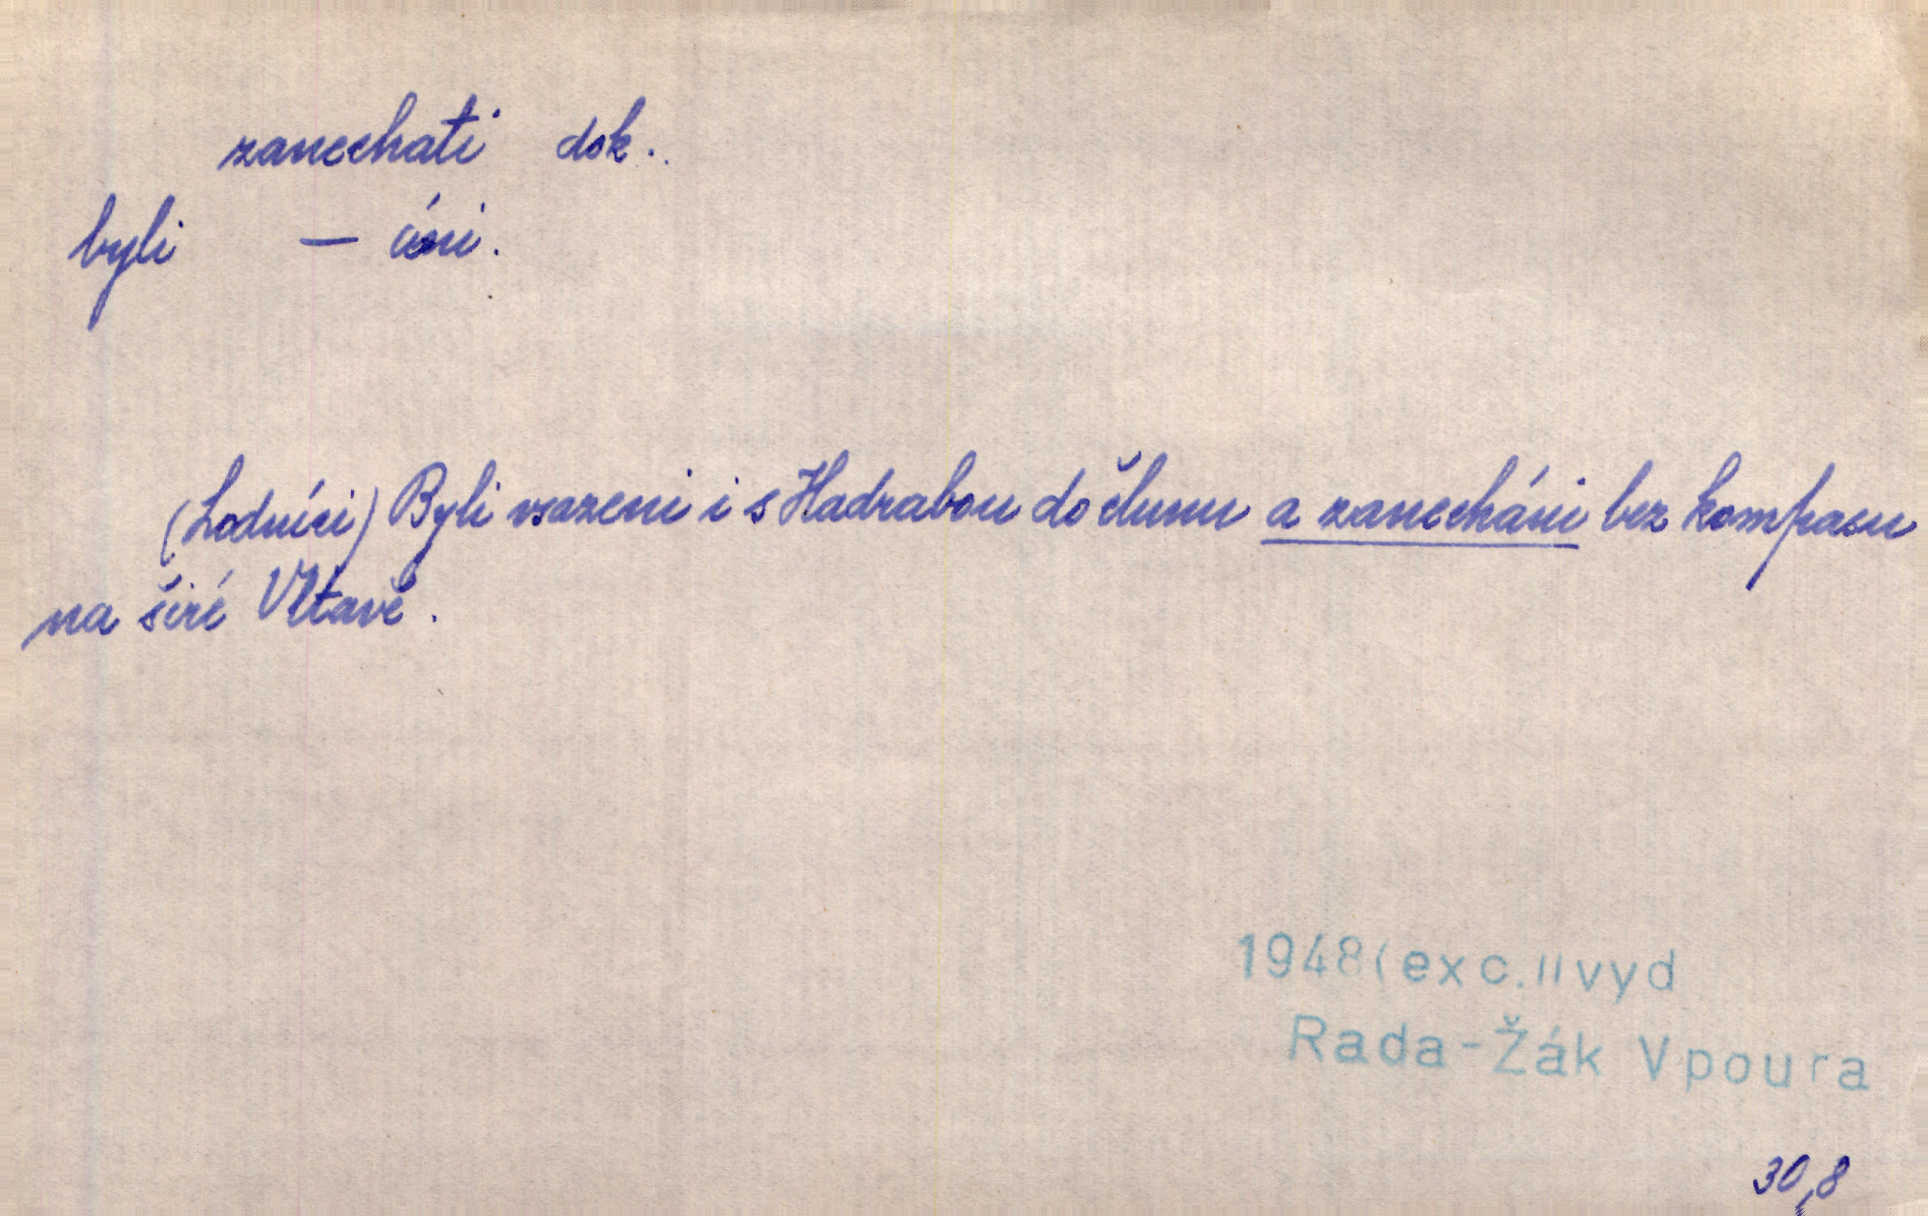 zanechati dok.
byli — áni.
(Lodníci) Byli vsazeni i s Hadrabou do člunu a zanecháni bez kompasu
na širé Vltavě.
1948(exc.IIvyd
Rada-Žák Vpoura
30,8